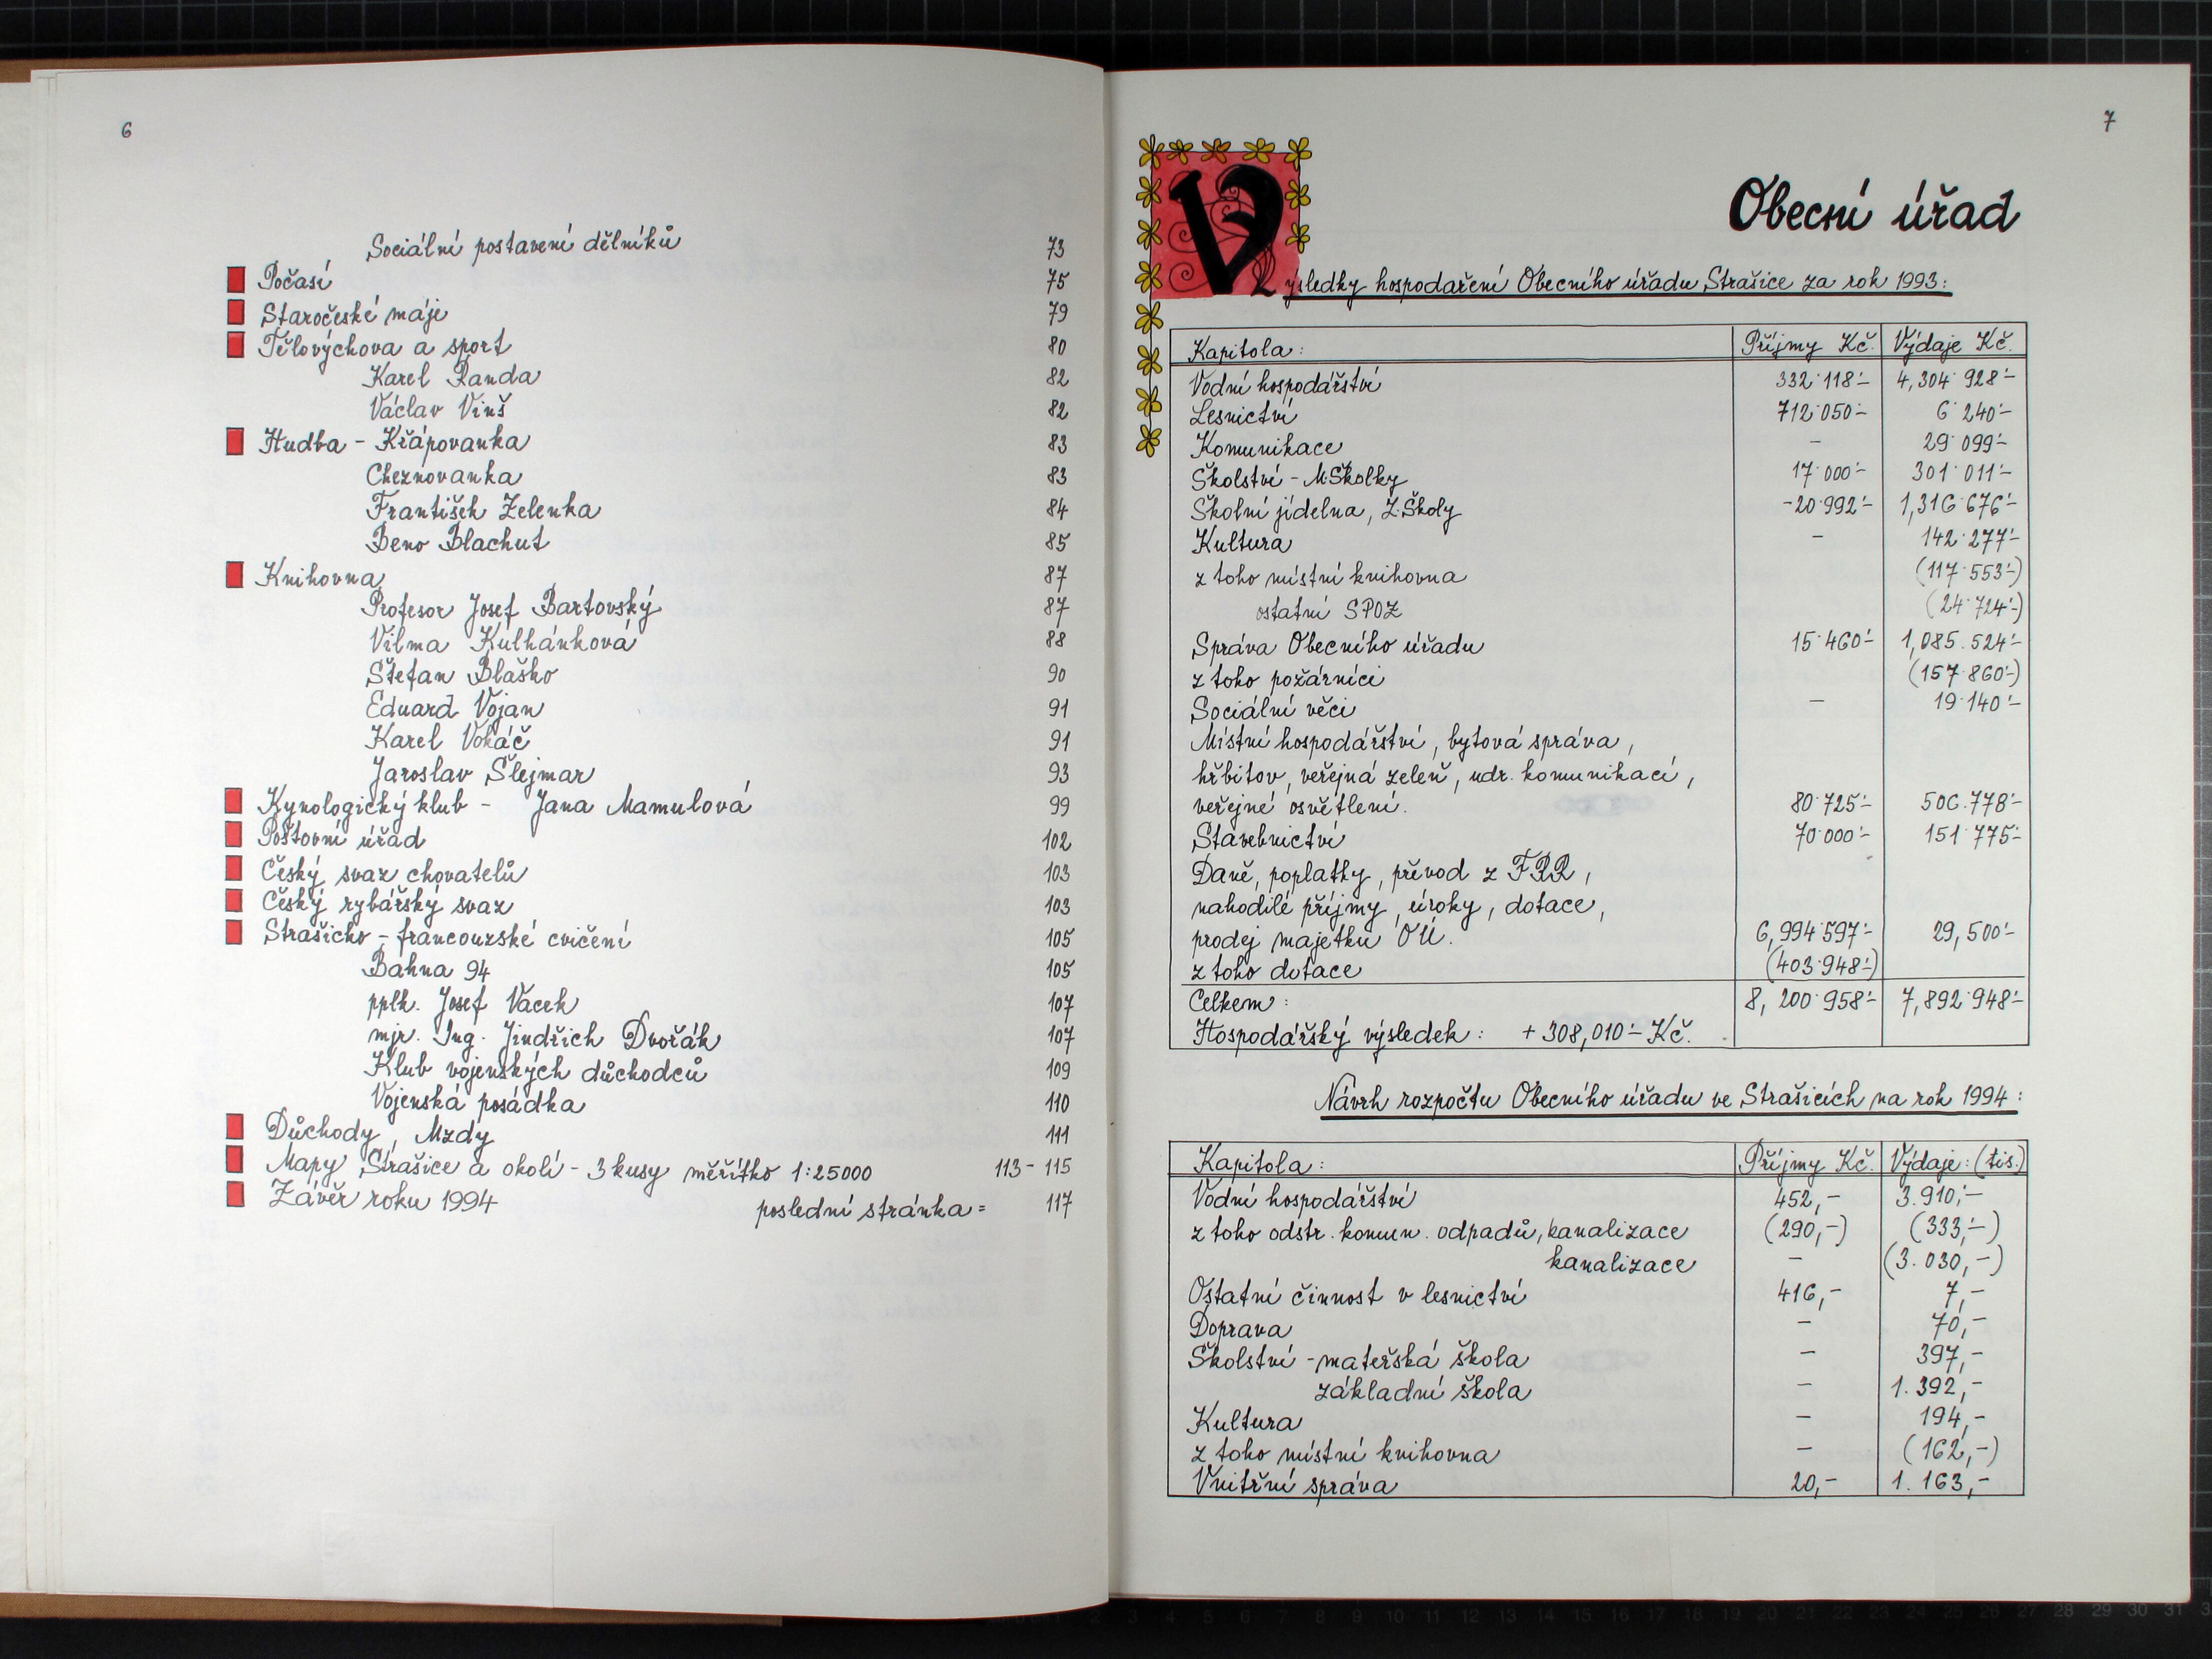 6
Sociální postavení dělníků 73
Počasí 75
Staročeské máje 79
Tělovýchova a sport 80
Karel Randa 82
Václav Vinš 82
Hudba - Křápovanka 83
Cheznovanka 83
František Zelenka 84
Beno Blachut 85
Knihovna 87
Profesor Josef Bartovský 87
Vilma Kulhánková 88
Štefan Blaško 90
Eduard Vojan 91
Karel Vokáč 91
Jaroslav Šlejmar 93
Kynologický klub - Jana Mamulová 99
Poštovní úřad 102
Český svaz chovatelů 103
Český rybářský svaz 103
Strašicko - francouzské cvičení 105
Bahna 94 105
pplk. Josef Vacek 107
mjr. Ing. Jindřich Dvořák 107
Klub vojenských důchodců 109
Vojenská posádka 110
Důchody, Mzdy 111
Mapy Strašice a okolí - 3 kusy měřítko 1:25000 113 - 115
Závěr roku 1994 poslední stránka = 117
7
Obecní úřad
Výsledky hospodaření Obecního úřadu Strašice za rok 1993:
Kapitola: Příjmy Kč. Výdaje Kč.
Vodní hospodářství 332·118·- 4,304·928·-
Lesnictví 712·050·- 6·240·-
Komunikace - 29·099·-
Školství - M.Školky 17·000·- 301·011·-
Školní jídelna, Z.Školy -20·992·- 1,316·676·-
Kultura - 142·277·-
z toho místní knihovna (117·553·-)
ostatní SPOZ (24·724·-)
Správa Obecního úřadu 15·460·- 1,085.524·-
z toho požárníci (157·860·-)
Sociální věci - 19·140·-
Místní hospodářství, bytová správa,
hřbitov, veřejná zeleň, udr. komunikací,
veřejné osvětlení. 80·725·- 506.778·-
Stavebnictví 70·000·- 151·775·-
Daně, poplatky, převod z FRR,
nahodilé příjmy, úroky, dotace,
prodej majetku OÚ. 6,994·597·- 29,500·-
z toho dotace (403·948·-)
Celkem: 8,200·958·- 7,892·948·-
Hospodářský výsledek: + 308,010·- Kč.
Návrh rozpočtu Obecního úřadu ve Strašicích na rok 1994:
Kapitola: Příjmy Kč. Výdaje: (tis.)
Vodní hospodářství 452,- 3.910,-
z toho odstr. komun. odpadů, kanalizace (290,-) (333,-)
kanalizace - (3.030,-)
Ostatní činnost v lesnictví 416,- 7,-
Doprava - 70,-
Školství - mateřská škola - 397,-
základní škola - 1.392,-
Kultura - 194,-
z toho místní knihovna - (162,-)
Vnitřní správa 20,- 1.163,-